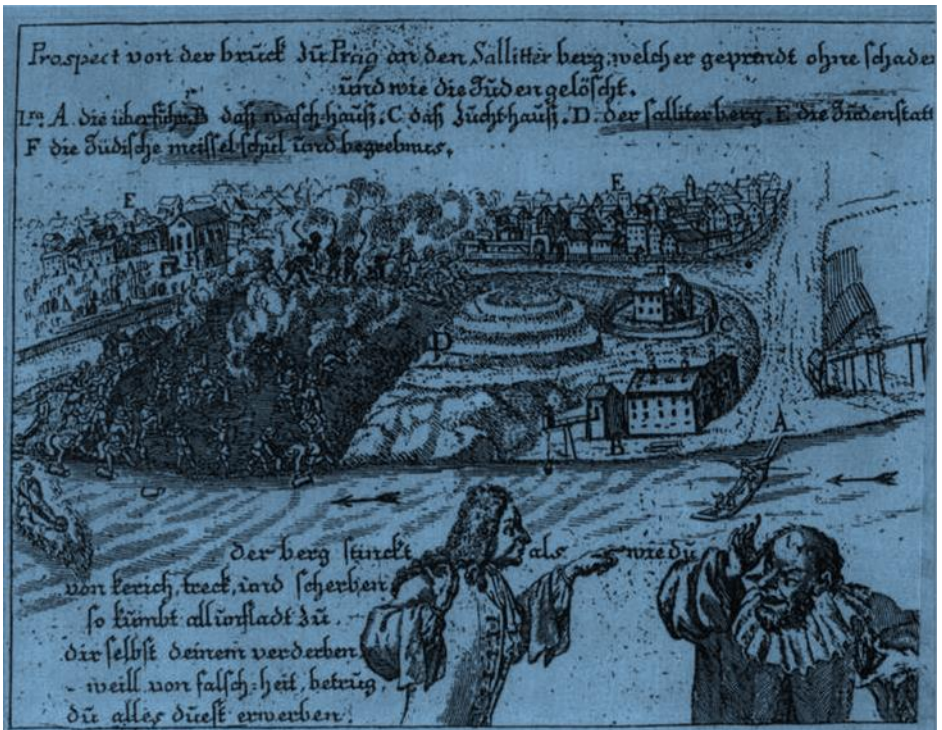 Prospect von der brück zu Prag an den Sallitter berg, welcher geprendt ohne schade
und wie die Juden gelöscht.
Lra A. die überfuhr, B daß wasch-hauß, C daß Zuchthauß, D. der salliterberg E die Judenstatt
F die Jüdische meissel schul und begrebnus.
E
E
D
C
B
A
der berg stinckt als wie dü
von kerich, treck, und scherben
so kümbt all unfladt zu
dir selbst deinem verderben
weill von falsch:heit, betrug,
dü alles düest erwerben.